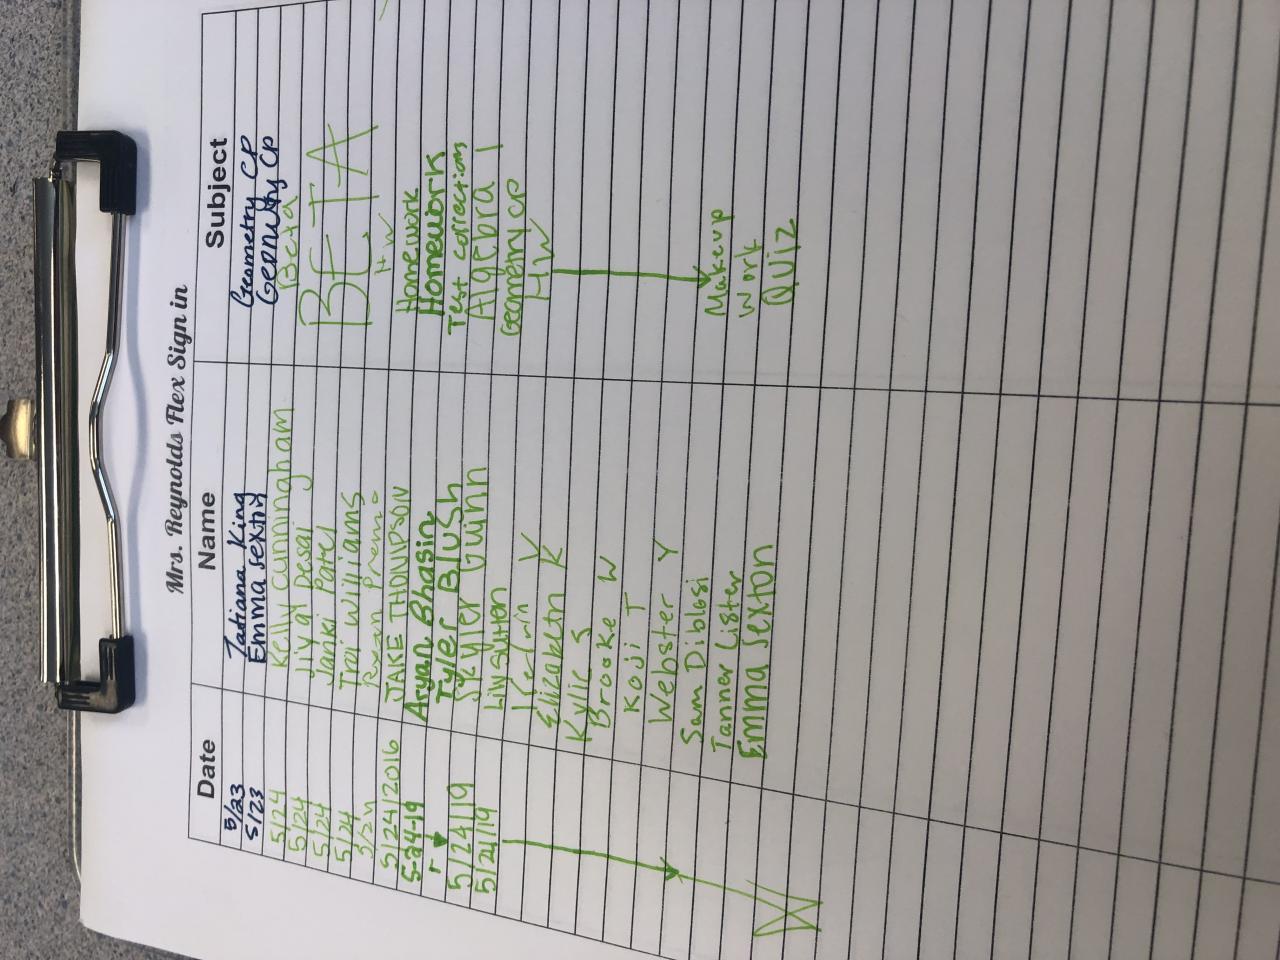 Mrs. Reynolds Flex Sign in
Date Name Subject
5/23 Tatiana King Geometry CP
5/23 Emma Sexton Geometry CP
5/24 Kelly Cunningham Beta
5/24 Jiyal Desai
5/24 Janki Patel BETA
5/24 Tori Williams
5/24 Ryan HW
5/24/2016 JAKE THOMPSON Homework
5-24-19 Aryan Bhasin Homework
Tyler Blush Test corrections
5/24/19 Skyler Guinn Algebra 1
5/24/19 Lily Sutton Geometry CP
V HW
Elizabeth K
Kylie S
Brooke W
Koji T
Webster Y
Sam Diblosi Makeup
Tanner Lister Work
Emma Sexton Quiz